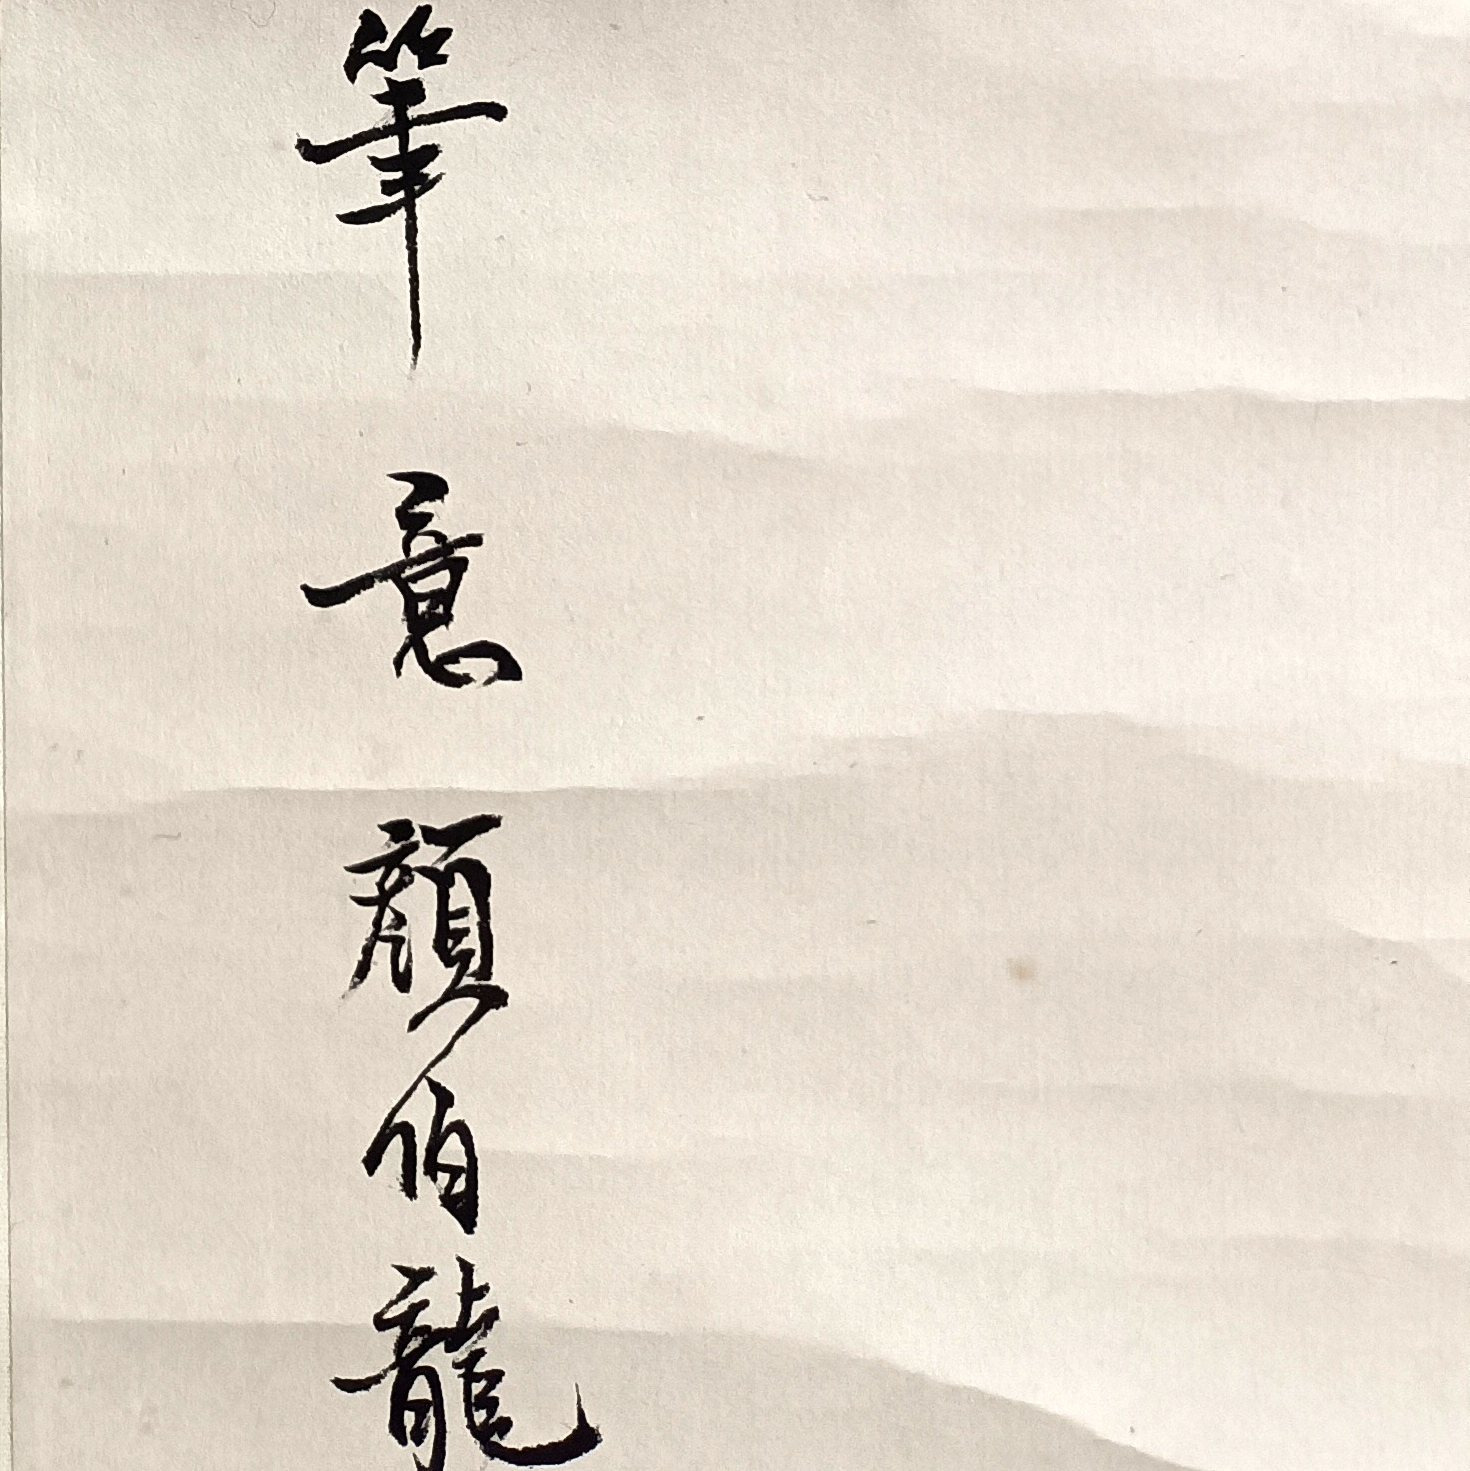 筆意顏伯龍